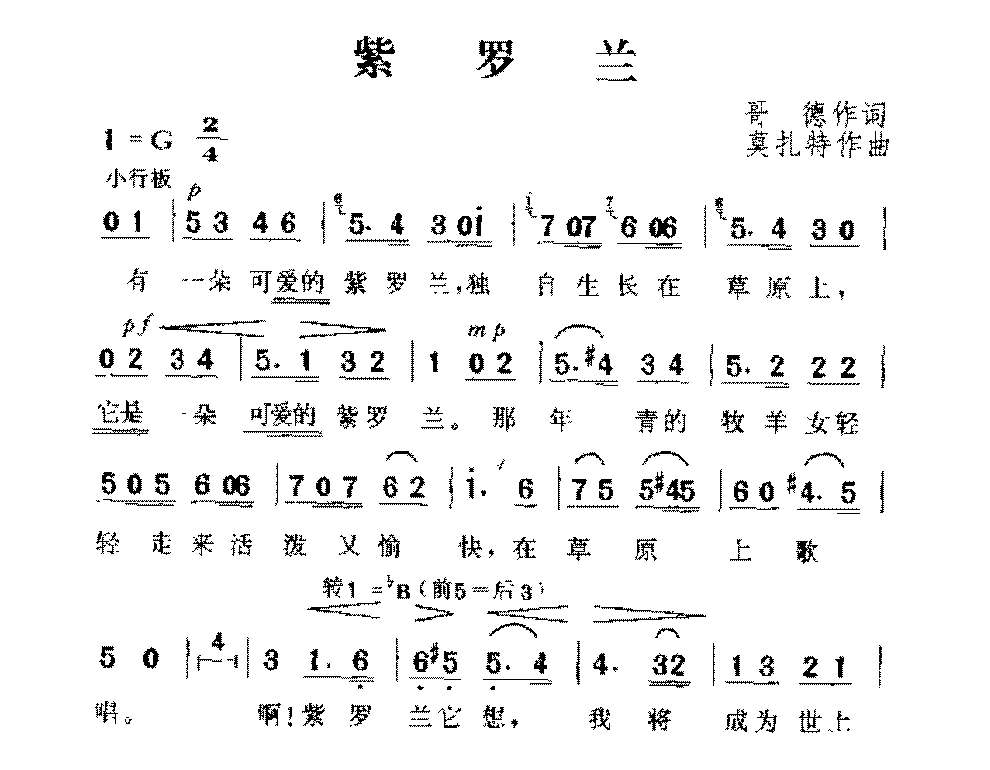 紫 罗 兰
哥 德作词
1 = G 2/4
莫扎特作曲
小行板
p
0 1 | 5 3 4 6 | 6 5. 4 3 0i | i 7 07 7 6 06 | 6 5. 4 3 0 |
有 一朵 可爱的 紫 罗 兰,独 自 生 长 在 草 原 上,
pf mp
0 2 3 4 | 5. 1 3 2 | 1 0 2 | 5. #4 3 4 | 5. 2 2 2 |
它是 一朵 可爱的 紫罗 兰。 那 年 青的 牧 羊 女轻
5 0 5 6 06 | 7 0 7 6 2 | i. 6 | 7 5 5#45 | 6 0 #4. 5 |
轻 走 来 活 泼 又 愉 快,在 草 原 上 歌
转1 = bB (前5=后3)
5 0 | 4 | 3 1. 6 | 6 #5 5. 4 | 4. 32 | 1 3 2 1 |
唱。 啊!紫 罗 兰它 想, 我 将 成为 世上